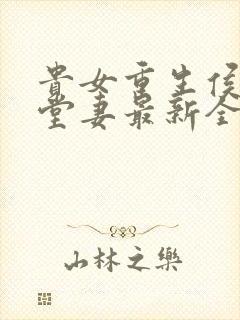 貴女重生侯
堂妻最新全
山林之樂